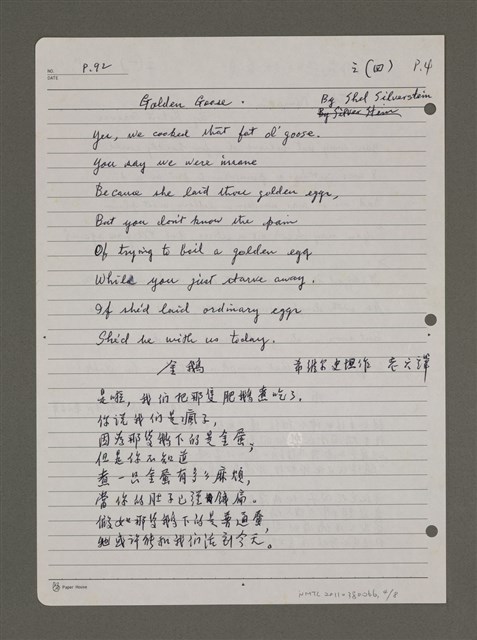 NO. P.92 之(四) P.4
DATE
Golden Goose. By Shel Silverstein
By Silver Stein
Yes, we cooked that fat ol' goose.
You say we were insane
Because she laid those golden eggs,
But you don't know the pain
Of trying to boil a golden egg
While you just starve away.
If she'd laid ordinary eggs
She'd be with us today.
金鵝 希維爾史坦作 譯
是啦,我们把那隻肥鵝煮吃了.
你说我们是瘋子,
因為那隻鵝下的是金蛋;
但是你不知道
煮一只金蛋有多么麻煩,
當你的肚子已經餓扁。
假如那隻鵝下的是普通蛋,
她或许能和我们活到今天。
Paper House
NMTL 2011 4/8